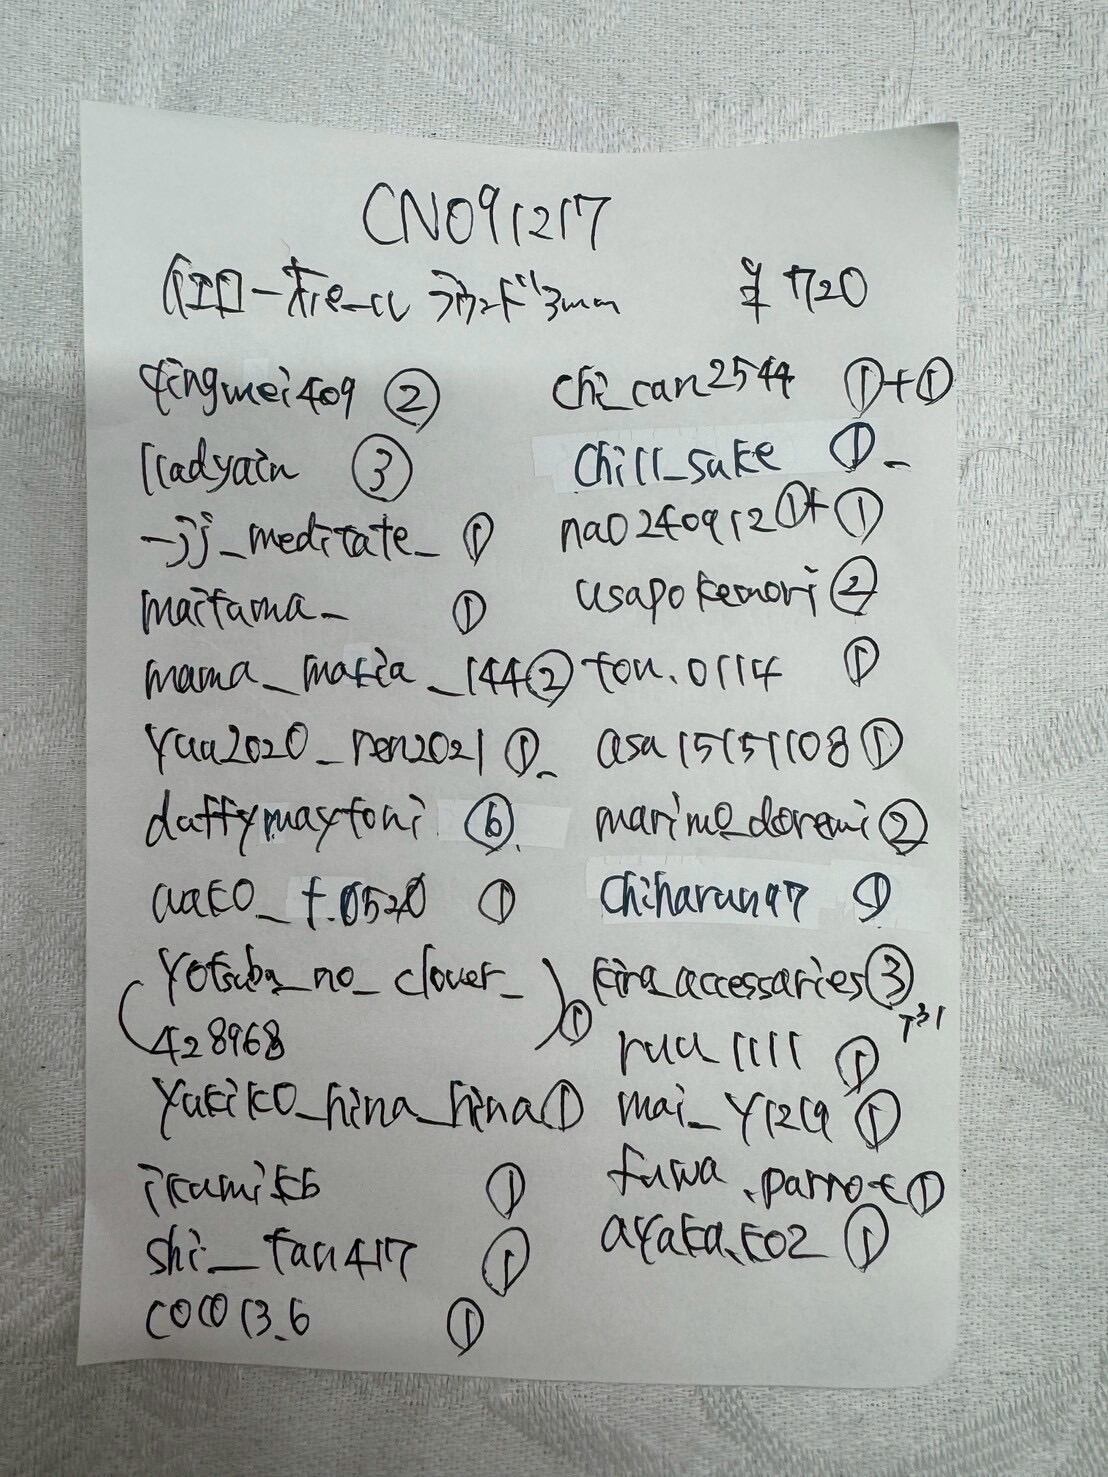 CN091217
イエローオパール ラウンド3mm ¥720
qingmei409 ②
lladyain ③
-jj_meditate_ ①
maitama_ ①
mama_mafia_144 ②
yuu2020_ren2021 ①
daffymaytoni ⑥
aako_t.0520 ①
(yotsuba_no_clover_
428968) ①
yukiko_hina_hina ①
ikumikb ①
shi__tan417 ①
coco13_6 ①
chi_can2544 ①+①
chill_sake ①
nao240912 ①+①
usapokemori ②
ton.0114 ①
asa15151108 ①
marimo_doremi ②
chiharun97 ①
kira_accessaries ③
ruu1111 ①
mai_y1219 ①
fuwa.parrot ①
ayaka.k02 ①